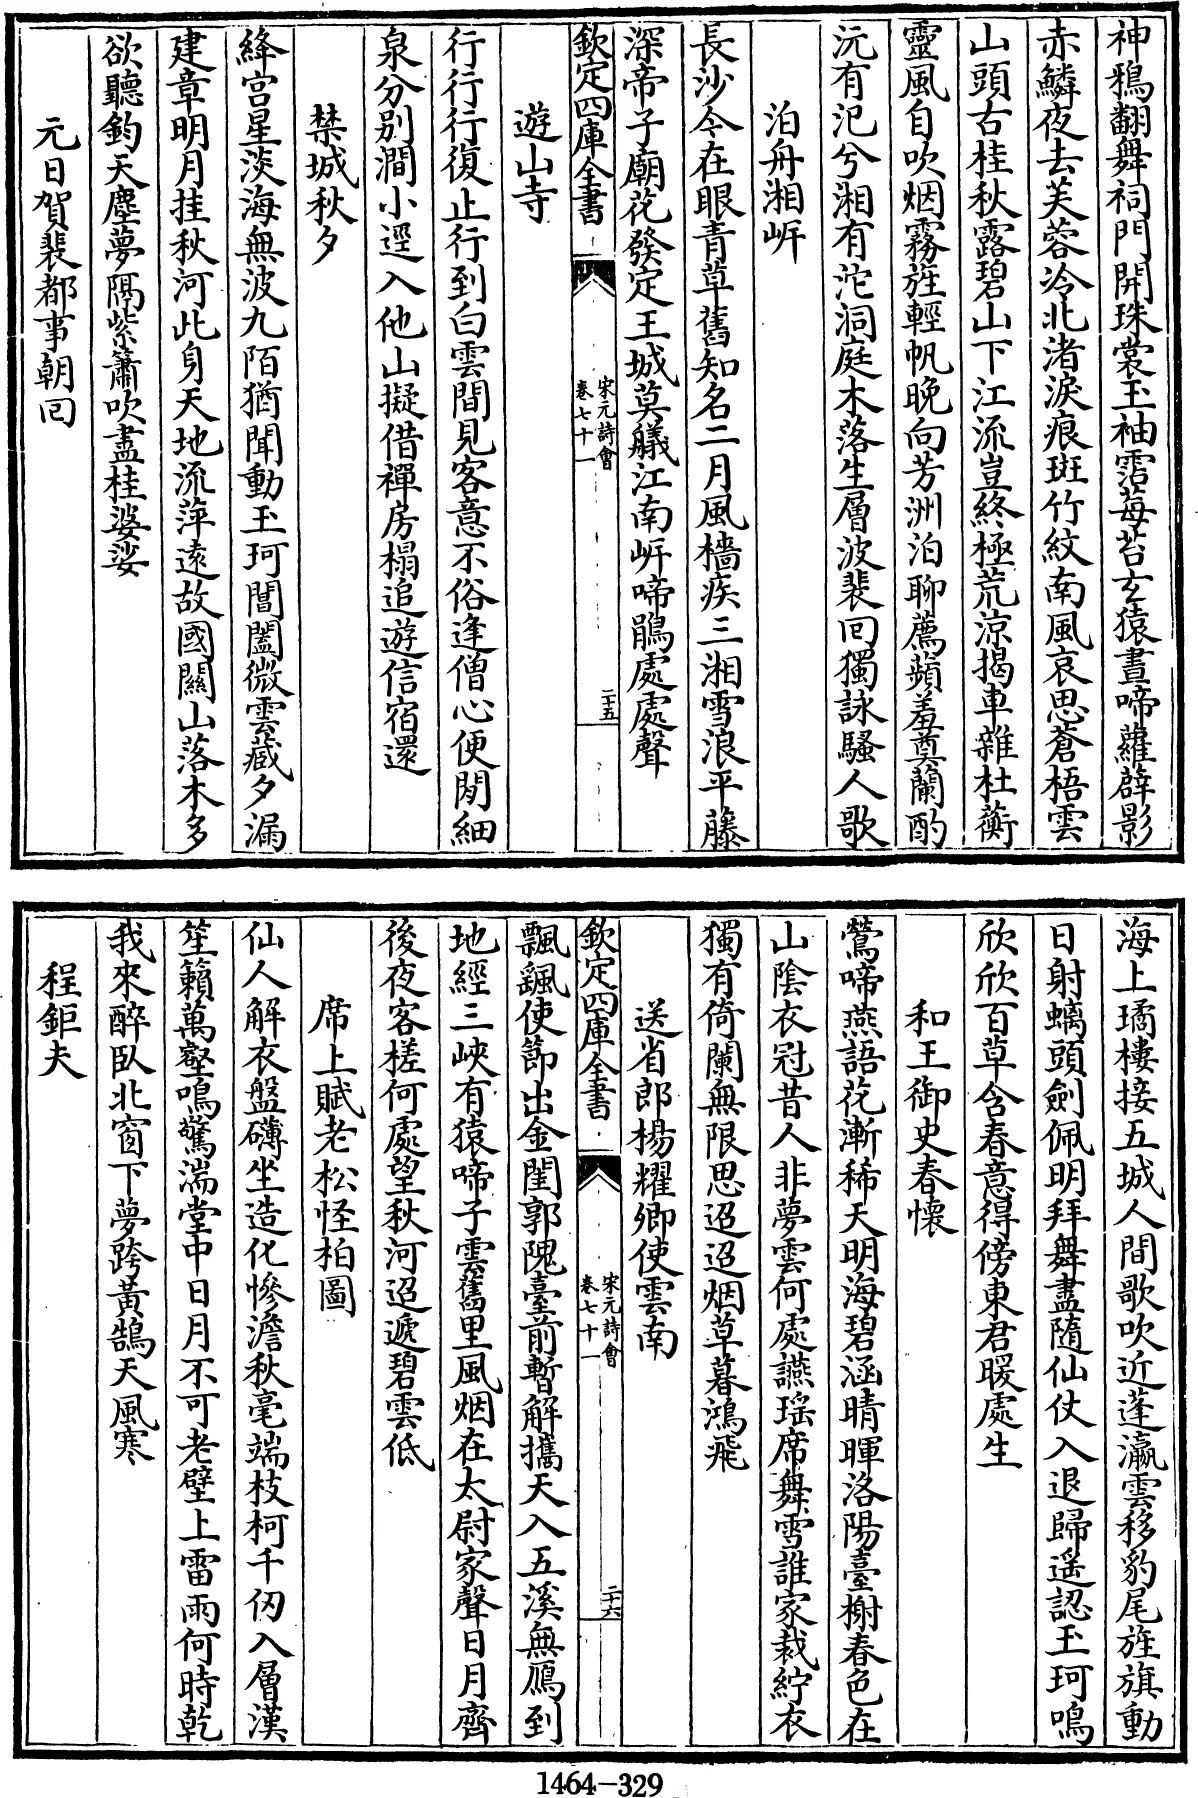 神鴉翻舞祠門開珠裳玉袖霑莓苔玄猿晝啼蘿薜影
赤鱗夜去芙蓉冷北渚淚痕斑竹紋南風哀思蒼梧雲
山頭古桂秋露碧山下江流豈終極荒涼揭車雜杜蘅
靈風自吹烟霧旌輕帆晩向芳洲泊聊薦蘋羞奠蘭酌
沅有氾兮湘有沱洞庭木落生層波裴回獨詠騷人歌
泊舟湘岍
長沙今在眼青草舊知名二月風檣疾三湘雪浪平藤
深帝子廟花發定王城莫艤江南岍啼鵑處處聲
欽定四庫全書
宋元詩會
卷七十一
二十五
遊山寺
行行行復止行到白雲間見客意不俗逢僧心便閒細
泉分別澗小逕入他山擬借禪房榻追遊信宿還
禁城秋夕
絳宮星淡海無波九陌猶聞動玉珂閶闔微雲藏夕漏
建章明月挂秋河此身天地流萍遠故國關山落木多
欲聽鈞天塵夢隔紫簫吹盡桂婆娑
元日賀裴都事朝回
海上璚樓接五城人間歌吹近蓬瀛雲移豹尾旌旗動
日射螭頭劍佩明拜舞盡隨仙仗入退歸遥認玉珂鳴
欣欣百草含春意得傍東君暖處生
和王御史春懐
鶯啼燕語花漸稀天明海碧涵晴暉洛陽臺榭春色在
山陰衣冠昔人非夢雲何處讌瑶席舞雪誰家裁紵衣
獨有倚闌無限思迢迢烟草暮鴻飛
送省郎楊耀卿使雲南
欽定四庫全書
宋元詩會
卷七十一
二十六
飄颻使節出金閨郭隗臺前暫解攜天入五溪無鴈到
地經三峽有猿啼子雲舊里風烟在太尉家聲日月齊
後夜客槎何處望秋河迢遞碧雲低
席上賦老松怪柏圖
仙人解衣盤礴坐造化慘澹秋毫端枝柯千仞入層漢
笙籟萬壑鳴驚湍堂中日月不可老壁上雷雨何時乾
我來醉臥北窗下夢跨黃鵠天風寒
程鉅夫
1464-329